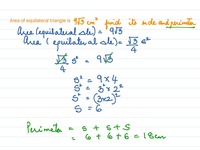 Area of equilateral triangle is 9√3 cm² find its side and perimeter
Area (equilateral Δle) = 9√3
Area (equilateral Δle) = √3/4 s²
√3/4 s² = 9√3
s² = 9 × 4
s² = 3² × 2²
s² = (3×2)²
s = 6
Perimeter = s + s + s
= 6 + 6 + 6 = 18 cm